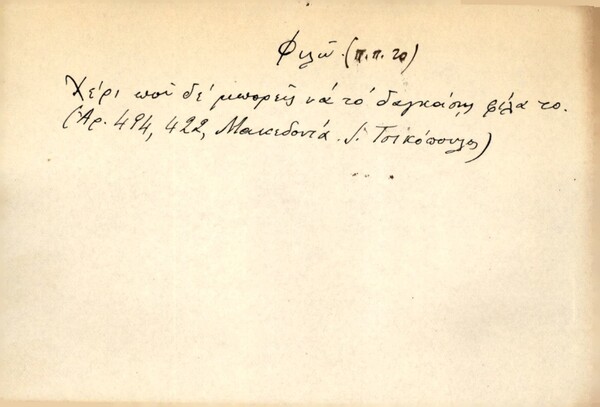 Φιλῶ (π.π. 20)
Χέρι ποῦ δέ μπορεῖς νά τό δαγκάσῃς φίλα το.
(Ἀρ. 494, 422, Μακεδονία. Ι. Τσικόπουλος)